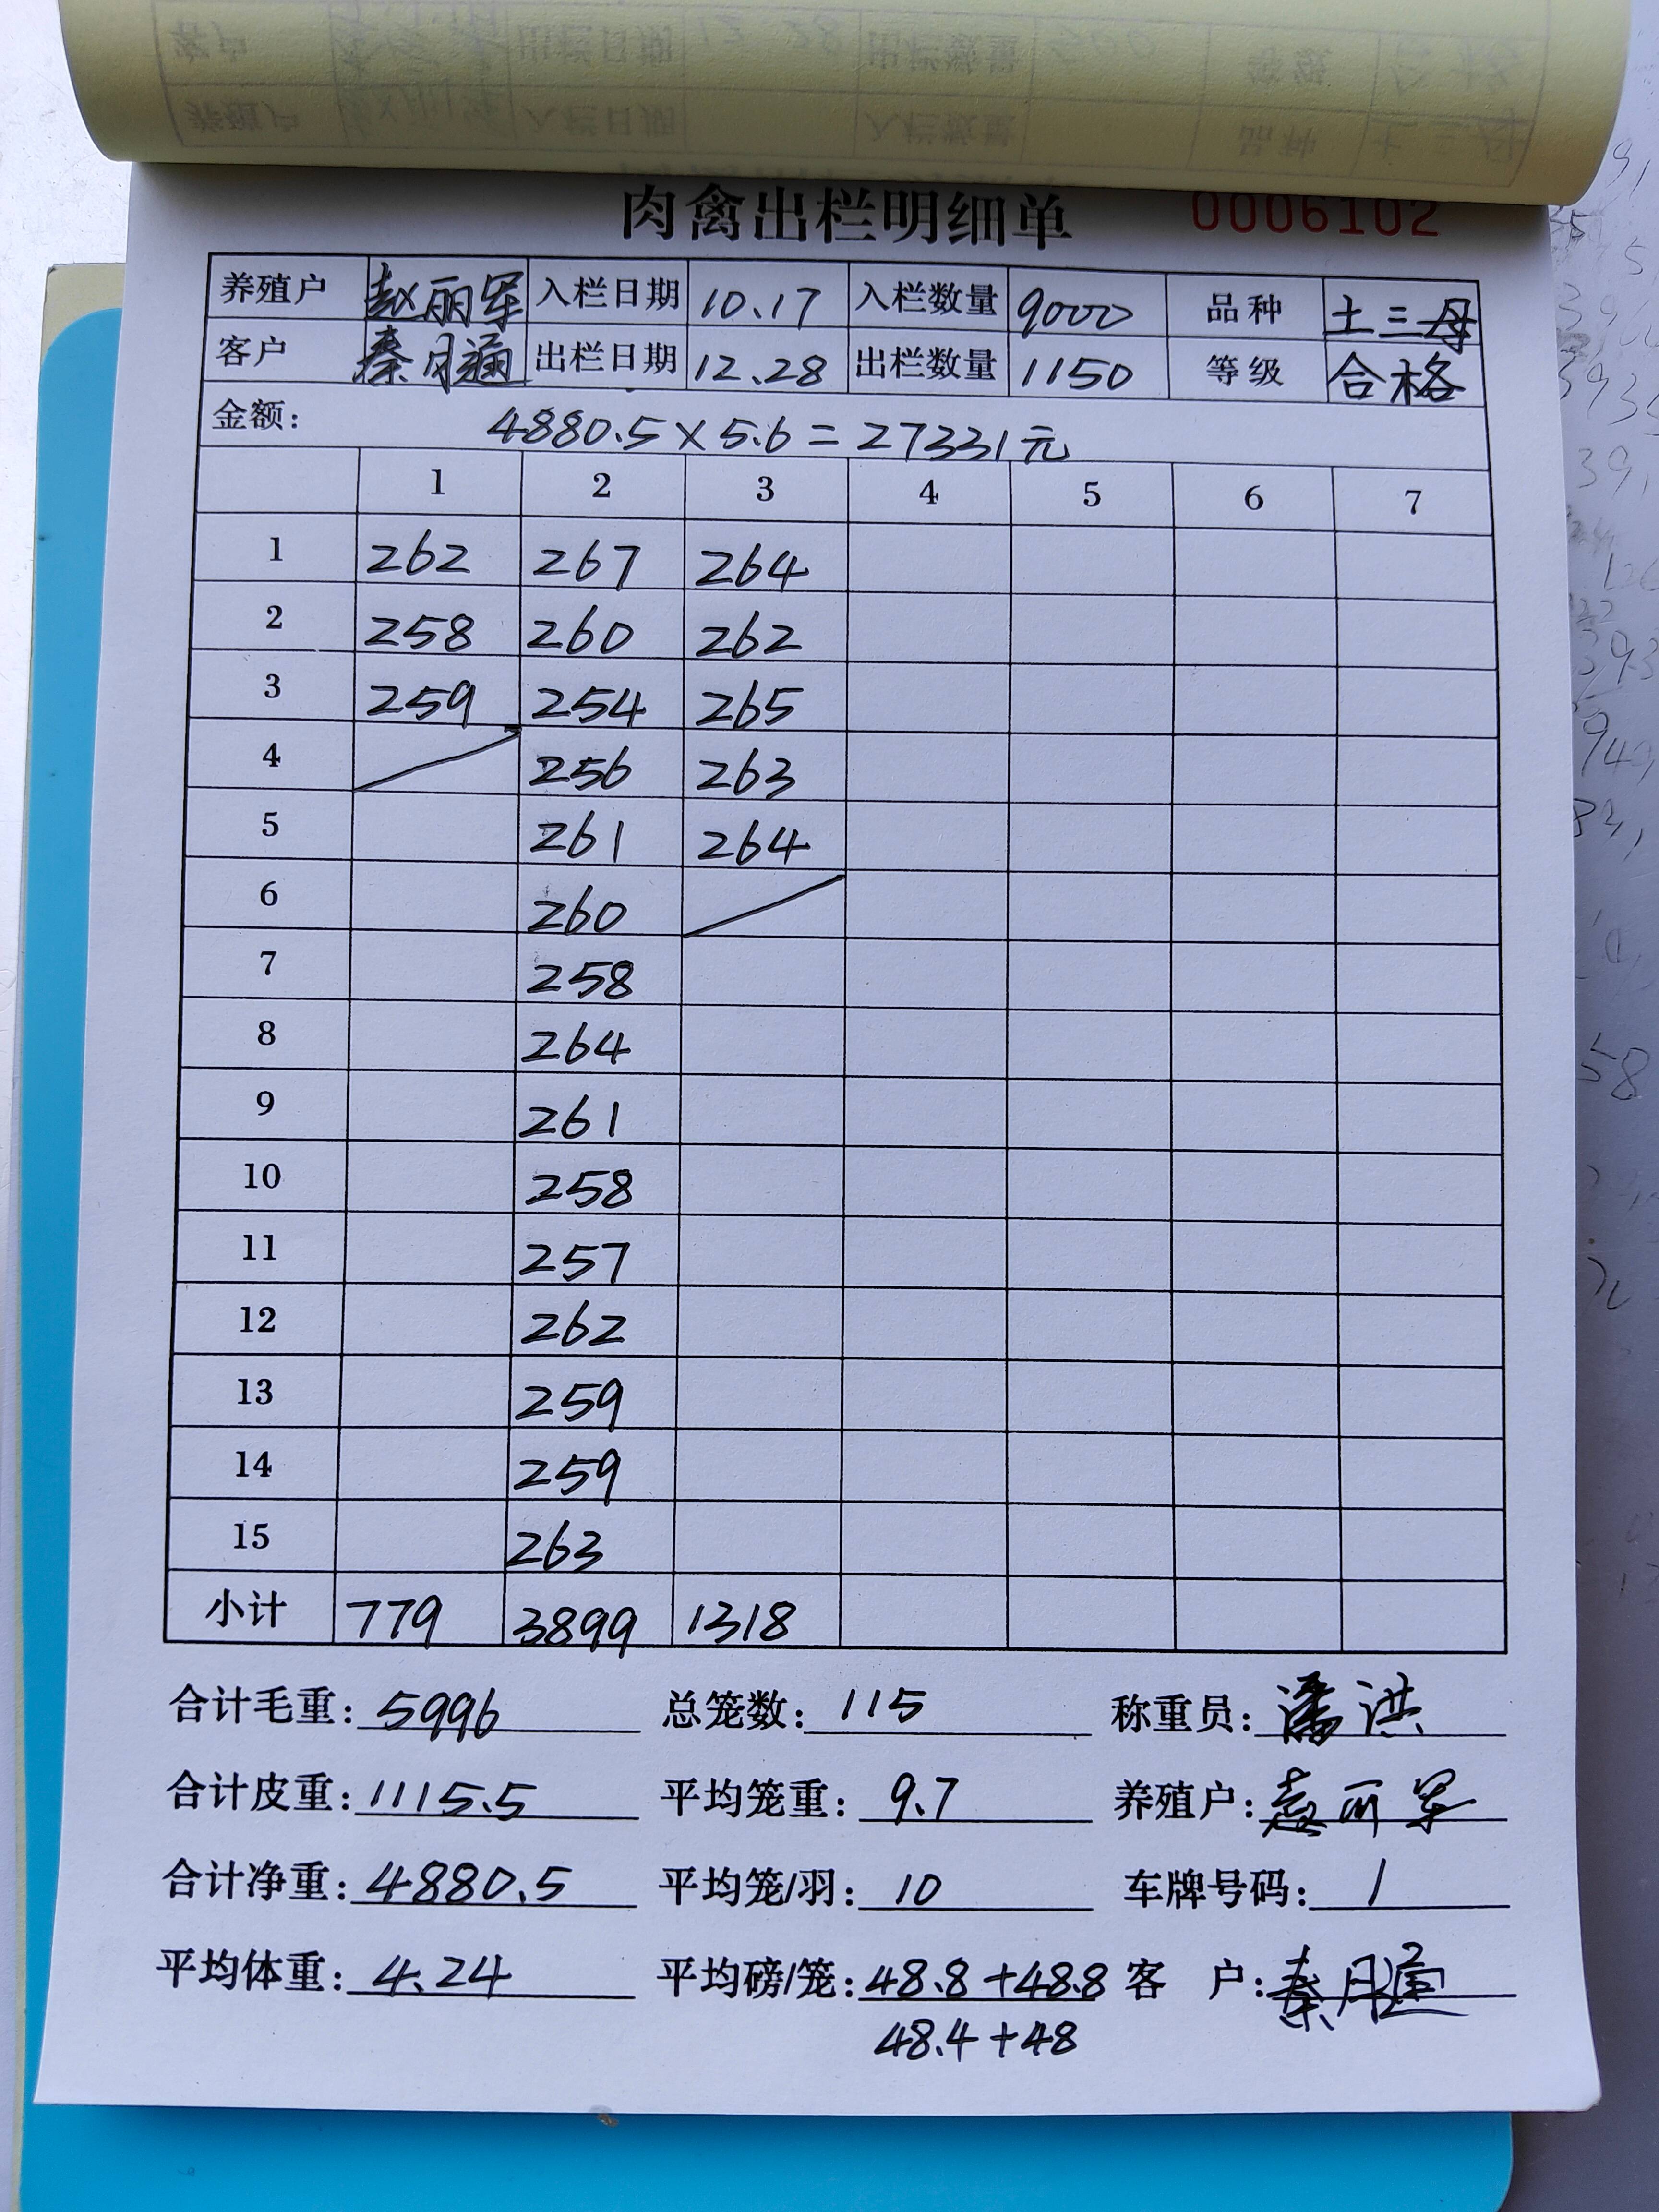 肉禽出栏明细单 0006102
养殖户 赵丽军 入栏日期 10.17 入栏数量 9000 品种 土三母
客户 秦月通 出栏日期 12.28 出栏数量 1150 等级 合格
金额: 4880.5×5.6=27331元
1 2 3 4 5 6 7
1 262 267 264
2 258 260 262
3 259 254 265
4 256 263
5 261 264
6 260
7 258
8 264
9 261
10 258
11 257
12 262
13 259
14 259
15 263
小计 779 3899 1318
合计毛重: 5996 总笼数: 115 称重员: 潘洪
合计皮重: 1115.5 平均笼重: 9.7 养殖户: 赵丽军
合计净重: 4880.5 平均笼/羽: 10 车牌号码: 1
平均体重: 4.24 平均磅/笼: 48.8+48.8 客 户: 秦月通
48.4+48